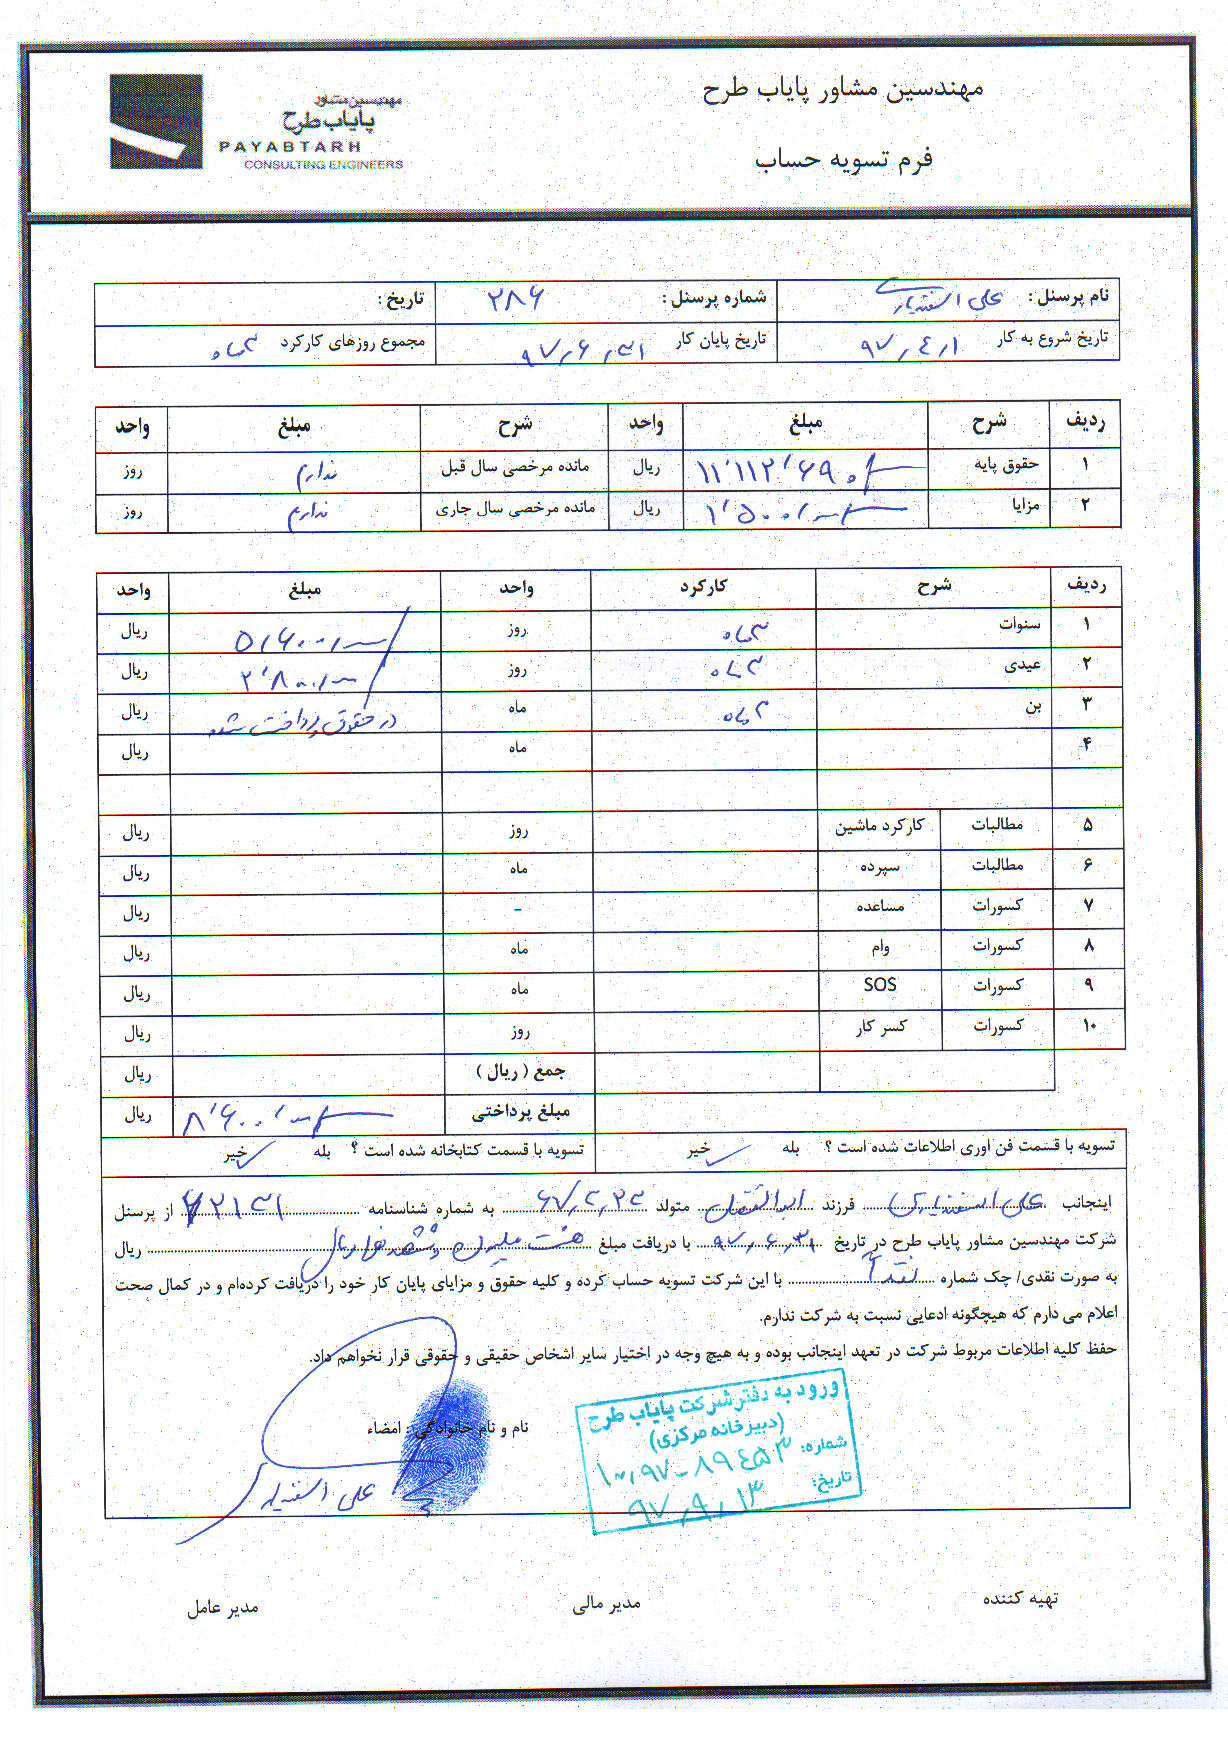 مهندسین مشاور پایاب طرح
فرم تسویه حساب
مهندسین مشاور
پایاب طرح
PAYABTARH
CONSULTING ENGINEERS
نام پرسنل : علی اسفندیاری شماره پرسنل : ۲۸۶ تاریخ :
تاریخ شروع به کار ۹۷,۴,۱ تاریخ پایان کار ۹۷,۶,۳۱ مجموع روزهای کارکرد ۳ ماه
ردیف شرح مبلغ واحد شرح مبلغ واحد
۱ حقوق پایه ۱۱'۱۱۲'۶۹۰ ریال مانده مرخصی سال قبل ندارم روز
۲ مزایا ریال مانده مرخصی سال جاری ندارم روز
ردیف شرح کارکرد واحد مبلغ واحد
۱ سنوات ۳ ماه روز ریال
۲ عیدی ۳ ماه روز ریال
۳ بن ۳ ماه ماه در حقوق پرداخت شده ریال
۴ ماه ریال
۵ مطالبات کارکرد ماشین روز ریال
۶ مطالبات سپرده ماه ریال
۷ کسورات مساعده - ریال
۸ کسورات وام ماه ریال
۹ کسورات SOS ماه ریال
۱۰ کسورات کسر کار روز ریال
جمع ( ریال ) ریال
مبلغ پرداختی ریال
تسویه با قسمت فن اوری اطلاعات شده است ؟ بله خیر تسویه با قسمت کتابخانه شده است ؟ بله خیر
اینجانب علی اسفندیاری فرزند ابوالفضل متولد ۶۷,۲,۲۳ به شماره شناسنامه از پرسنل
شرکت مهندسین مشاور پایاب طرح در تاریخ ۹۷,۶,۳۱ با دریافت مبلغ هشت میلیون و ششصد هزار ریال ریال
به صورت نقدی/ چک شماره نقداً با این شرکت تسویه حساب کرده و کلیه حقوق و مزایای پایان کار خود را دریافت کرده‌ام و در کمال صحت
اعلام می دارم که هیچگونه ادعایی نسبت به شرکت ندارم.
حفظ کلیه اطلاعات مربوط شرکت در تعهد اینجانب بوده و به هیچ وجه در اختیار سایر اشخاص حقیقی و حقوقی قرار نخواهم داد.
نام و نام خانوادگی : امضاء
علی اسفندیاری
ورود به دفتر شرکت پایاب طرح
(دبیرخانه مرکزی)
شماره: ۱۰۰,۹۷-۸۹۴۵۳
تاریخ: ۹۷,۹,۱۳
تهیه کننده مدیر مالی مدیر عامل